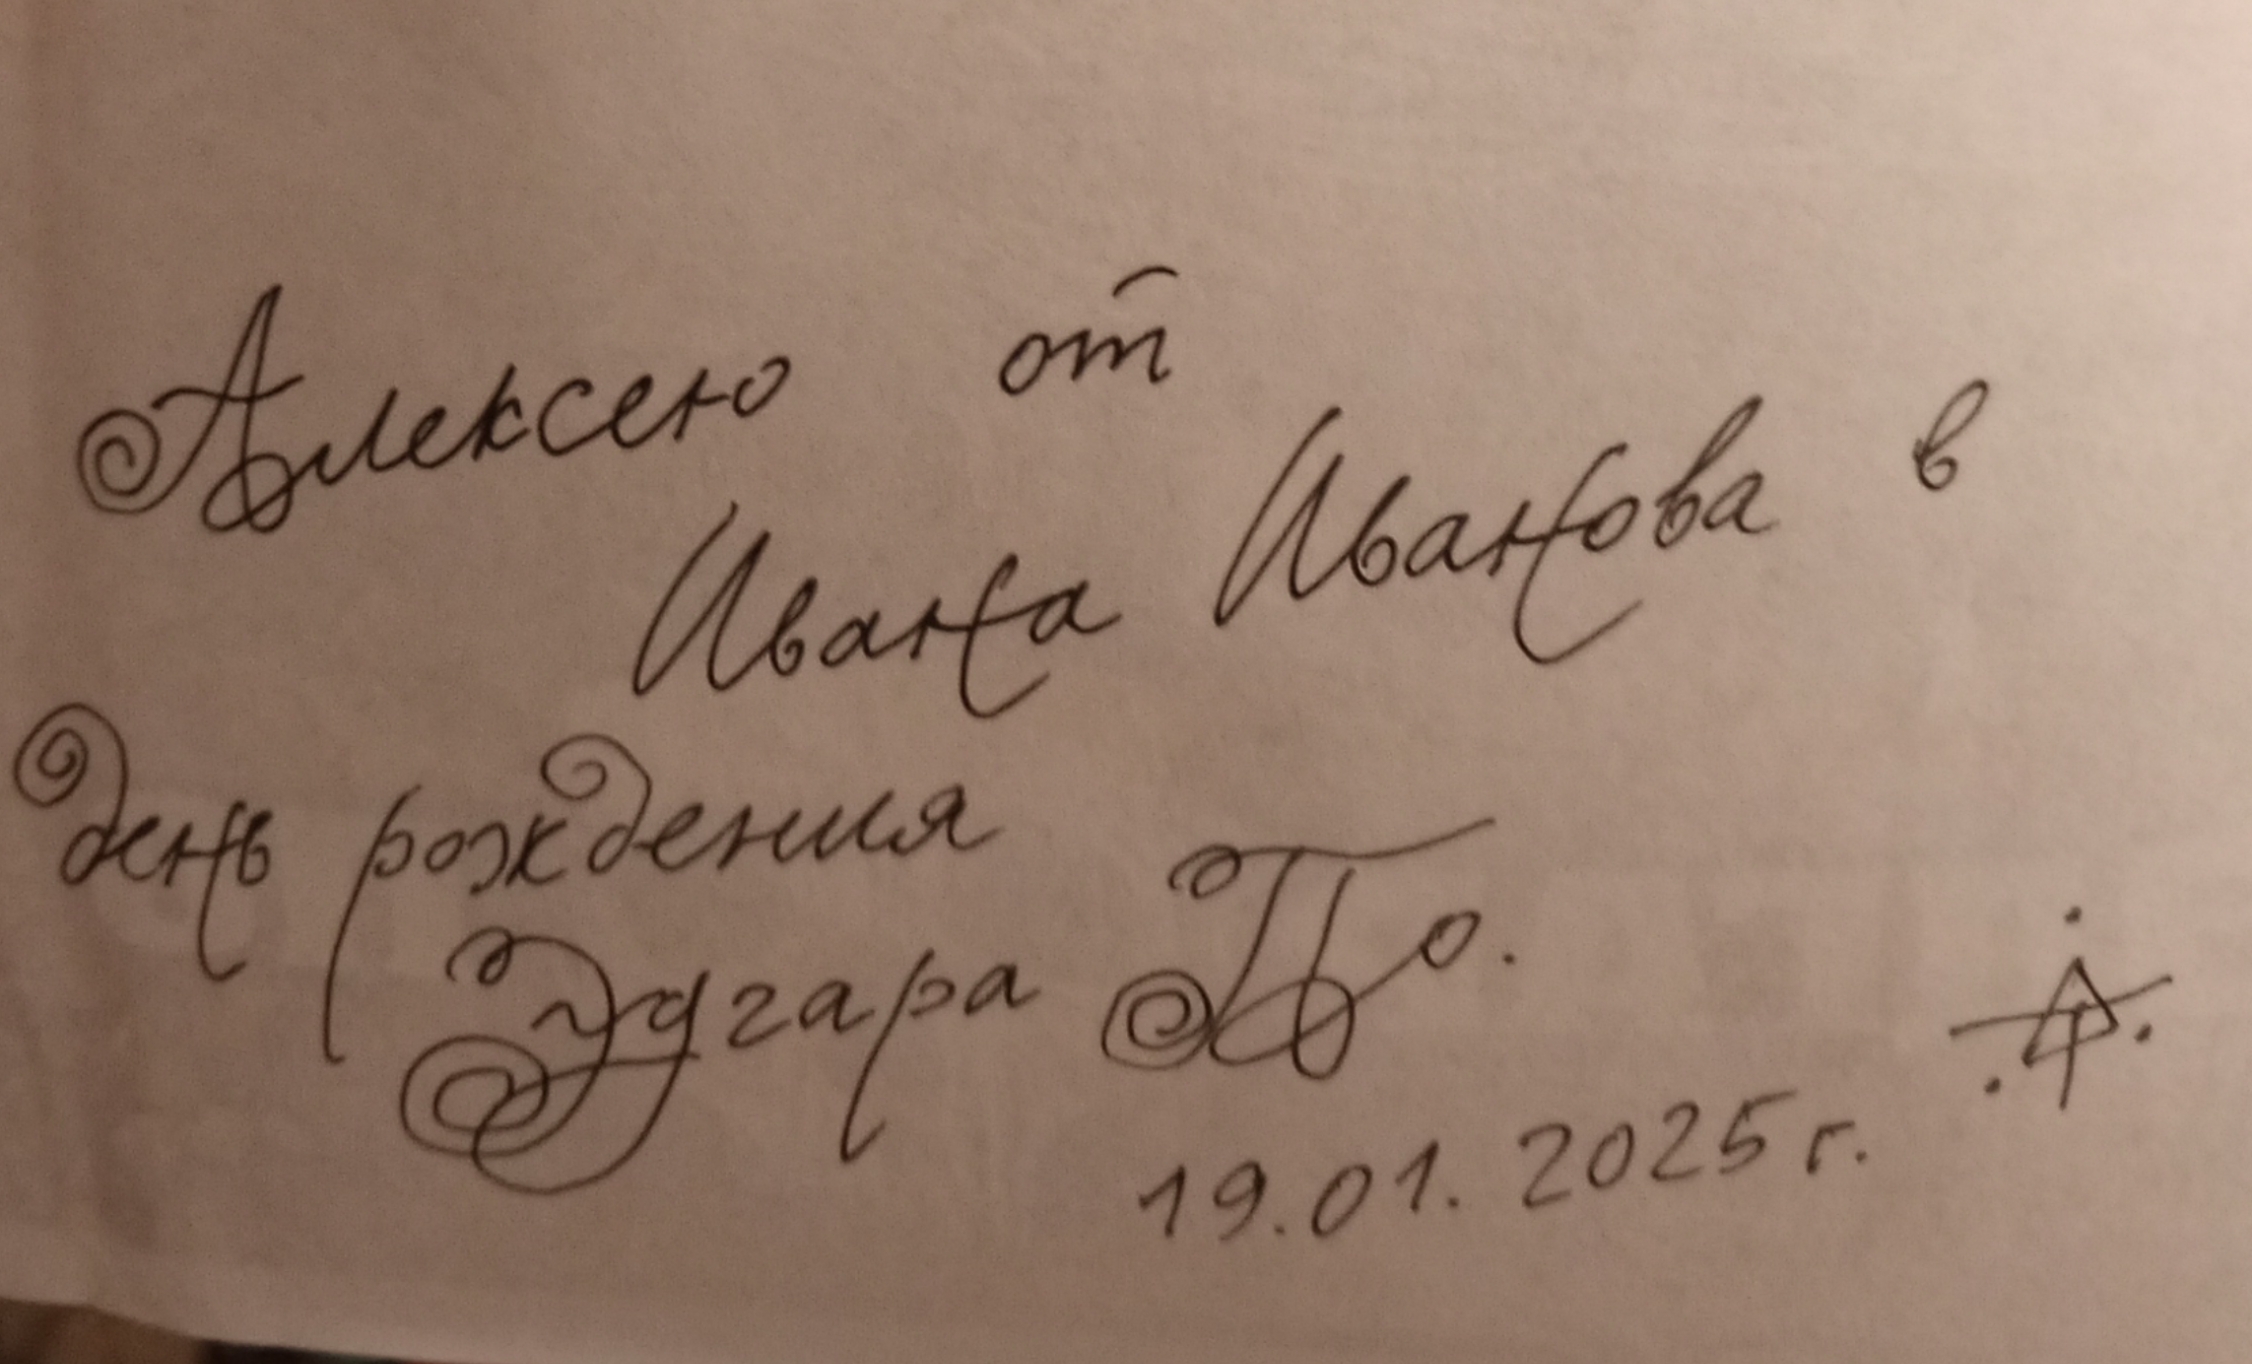 Алексею от
Ивана Иванова в
день рождения
Эдгара По.
19.01.2025г.